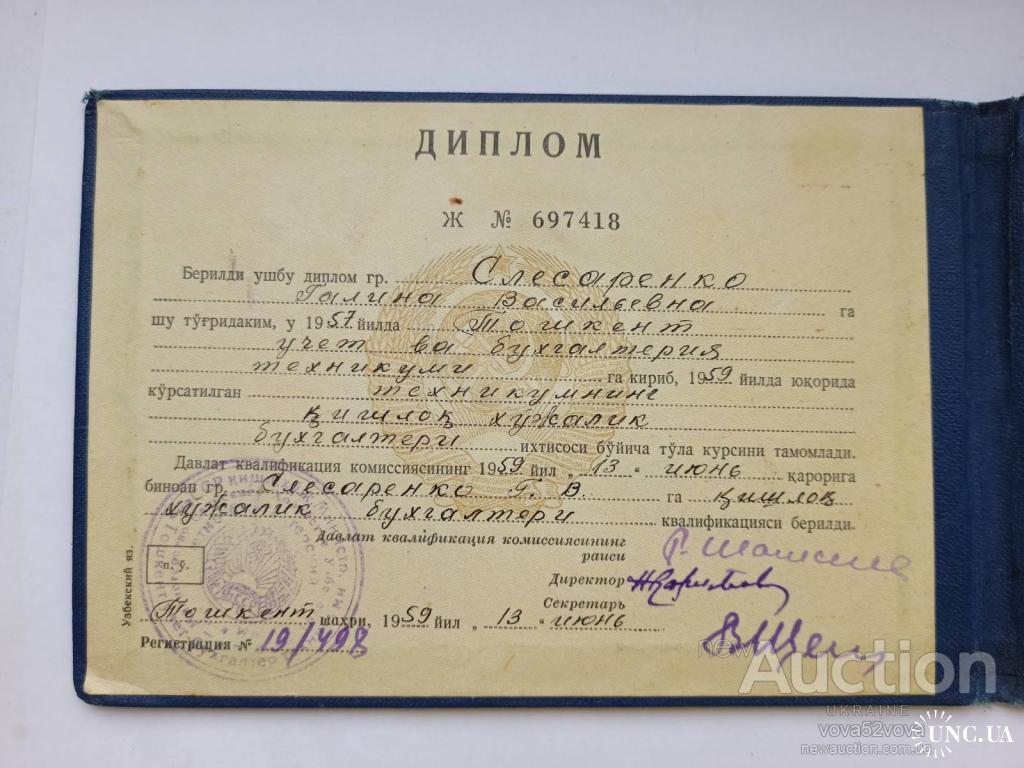 ДИПЛОМ
Ж № 697418
Берилди ушбу диплом гр. Слесаренко
Галина Васильевна га
шу тўғридаким, у 1957 йилда Тошкент
учет ва бухгалтерия
техникуми га кириб, 1959 йилда юқорида
кўрсатилган техникумнинг
қишлоқ хўжалик
бухгалтери ихтисоси бўйича тўла курсини тамомлади.
Давлат квалификация комиссиясининг 1959 йил „ 13 “ июнь қарорига
биноан гр. Слесаренко Г. В. га қишлоқ
хўжалик бухгалтери квалификацияси берилди.
Давлат квалификация комиссиясининг
раиси
Директор
Секретарь
Узбекский яз.
п. ў.
Тошкент шахри, 1959 йил „ 13 “ июнь
Регистрация № 19/498
new Auction
UKRAINE
vova52vova
newauction.com.ua
UNC.UA